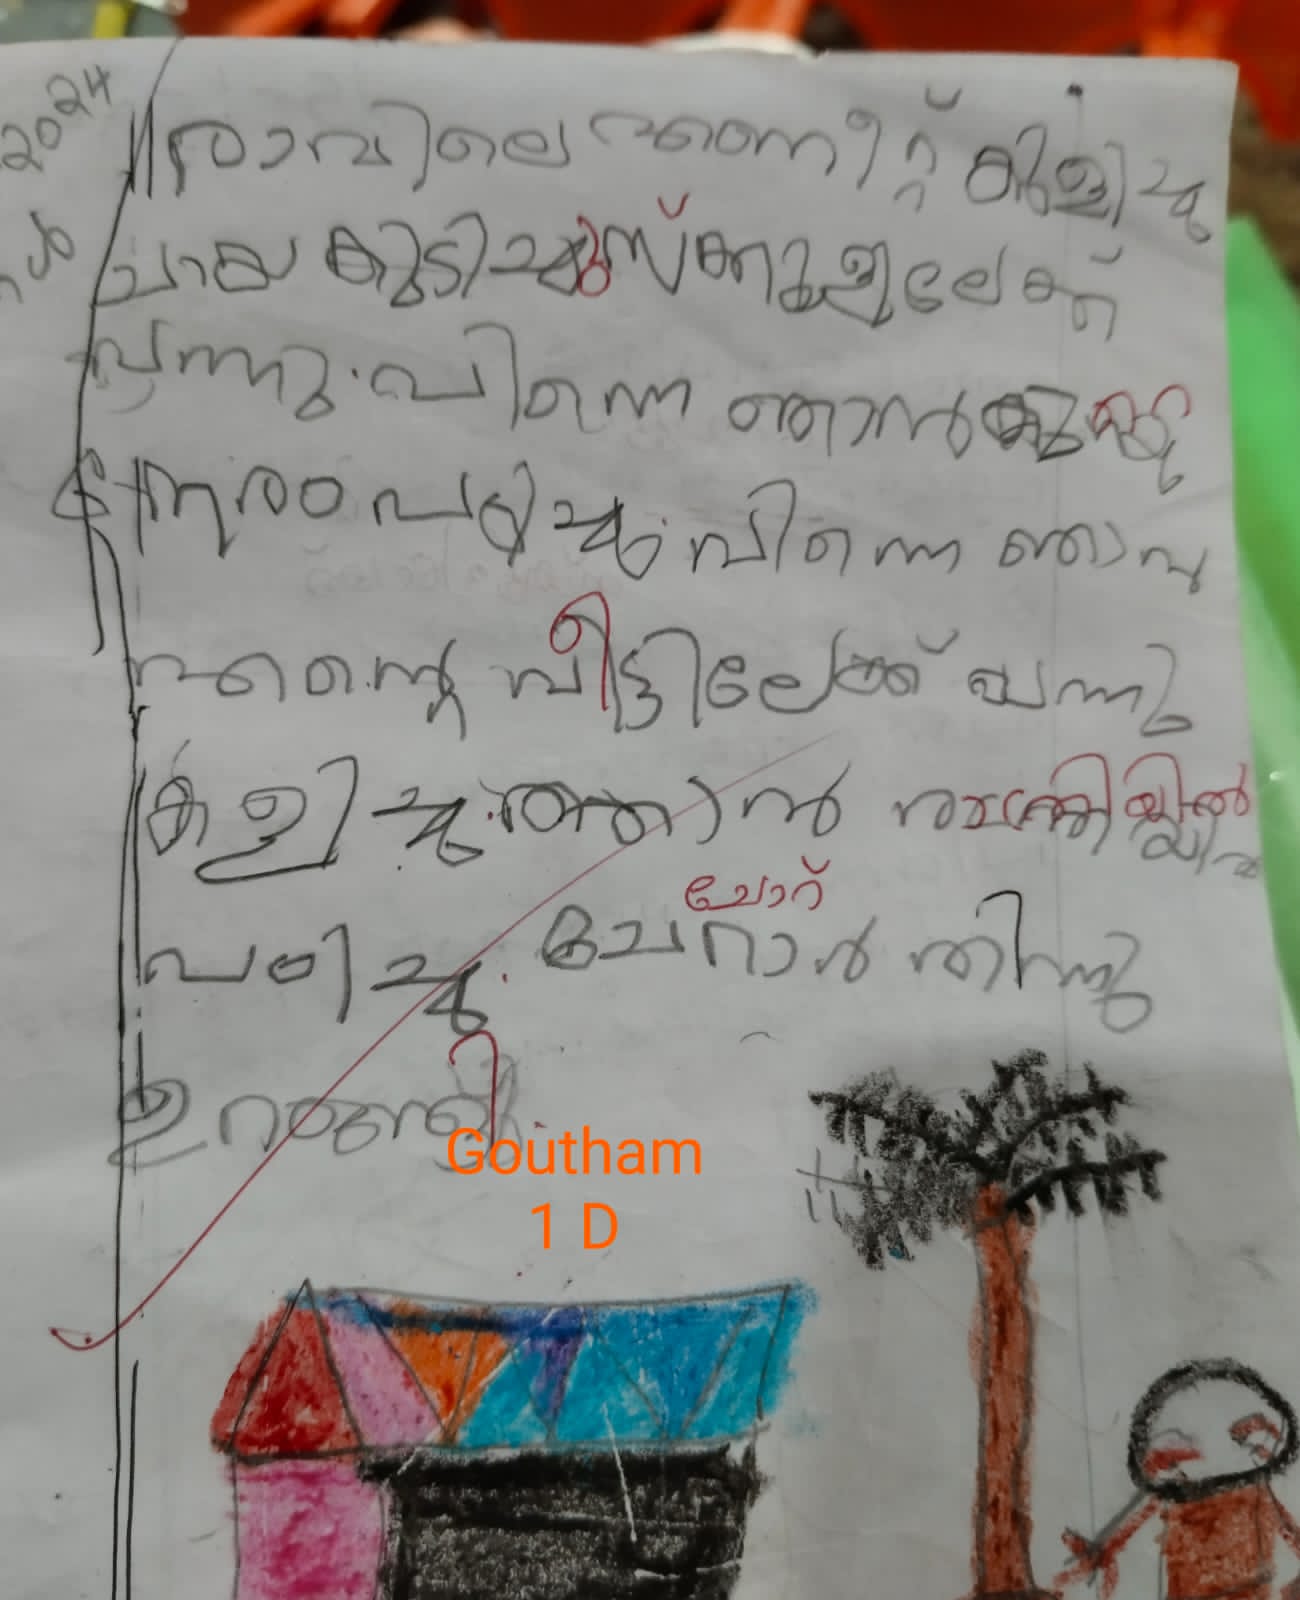 2024
രാവിലെ എണീറ്റ് കുളിച്ചു
ചായ കുടിച്ചു സ്ക്കുളിലേക്ക്
വന്നു. പിന്നെ ഞാൻ കുറച്ചു
നേരം പഠിച്ചു. പിന്നെ ഞാൻ
എന്റെ വീട്ടിലേക്ക് വന്നു
കളിച്ചു. ഞാൻ രാത്രിയിൽ
പഠിച്ചു.
ചോറ്
തിന്നു
ഉറങ്ങി.
Goutham
1 D